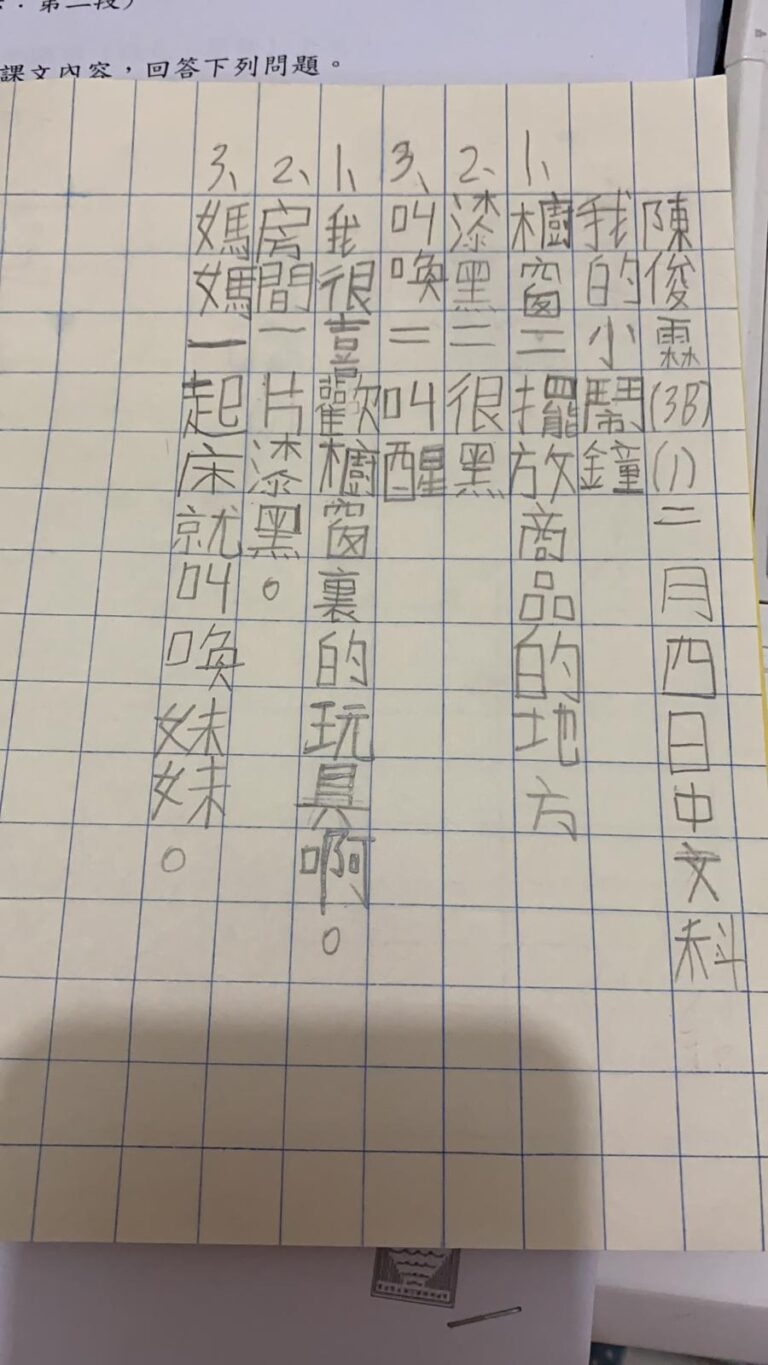 ：第二段）
課文內容，回答下列問題。
陳俊霖(3B)(1)二月四日中文科
我的小鬧鐘
1、櫥窗＝擺放商品的地方
2、漆黑＝很黑
3、叫喚＝叫醒
1、我很喜歡櫥窗裏的玩具啊。
2、房間一片漆黑。
3、媽媽一起床就叫喚妹妹。